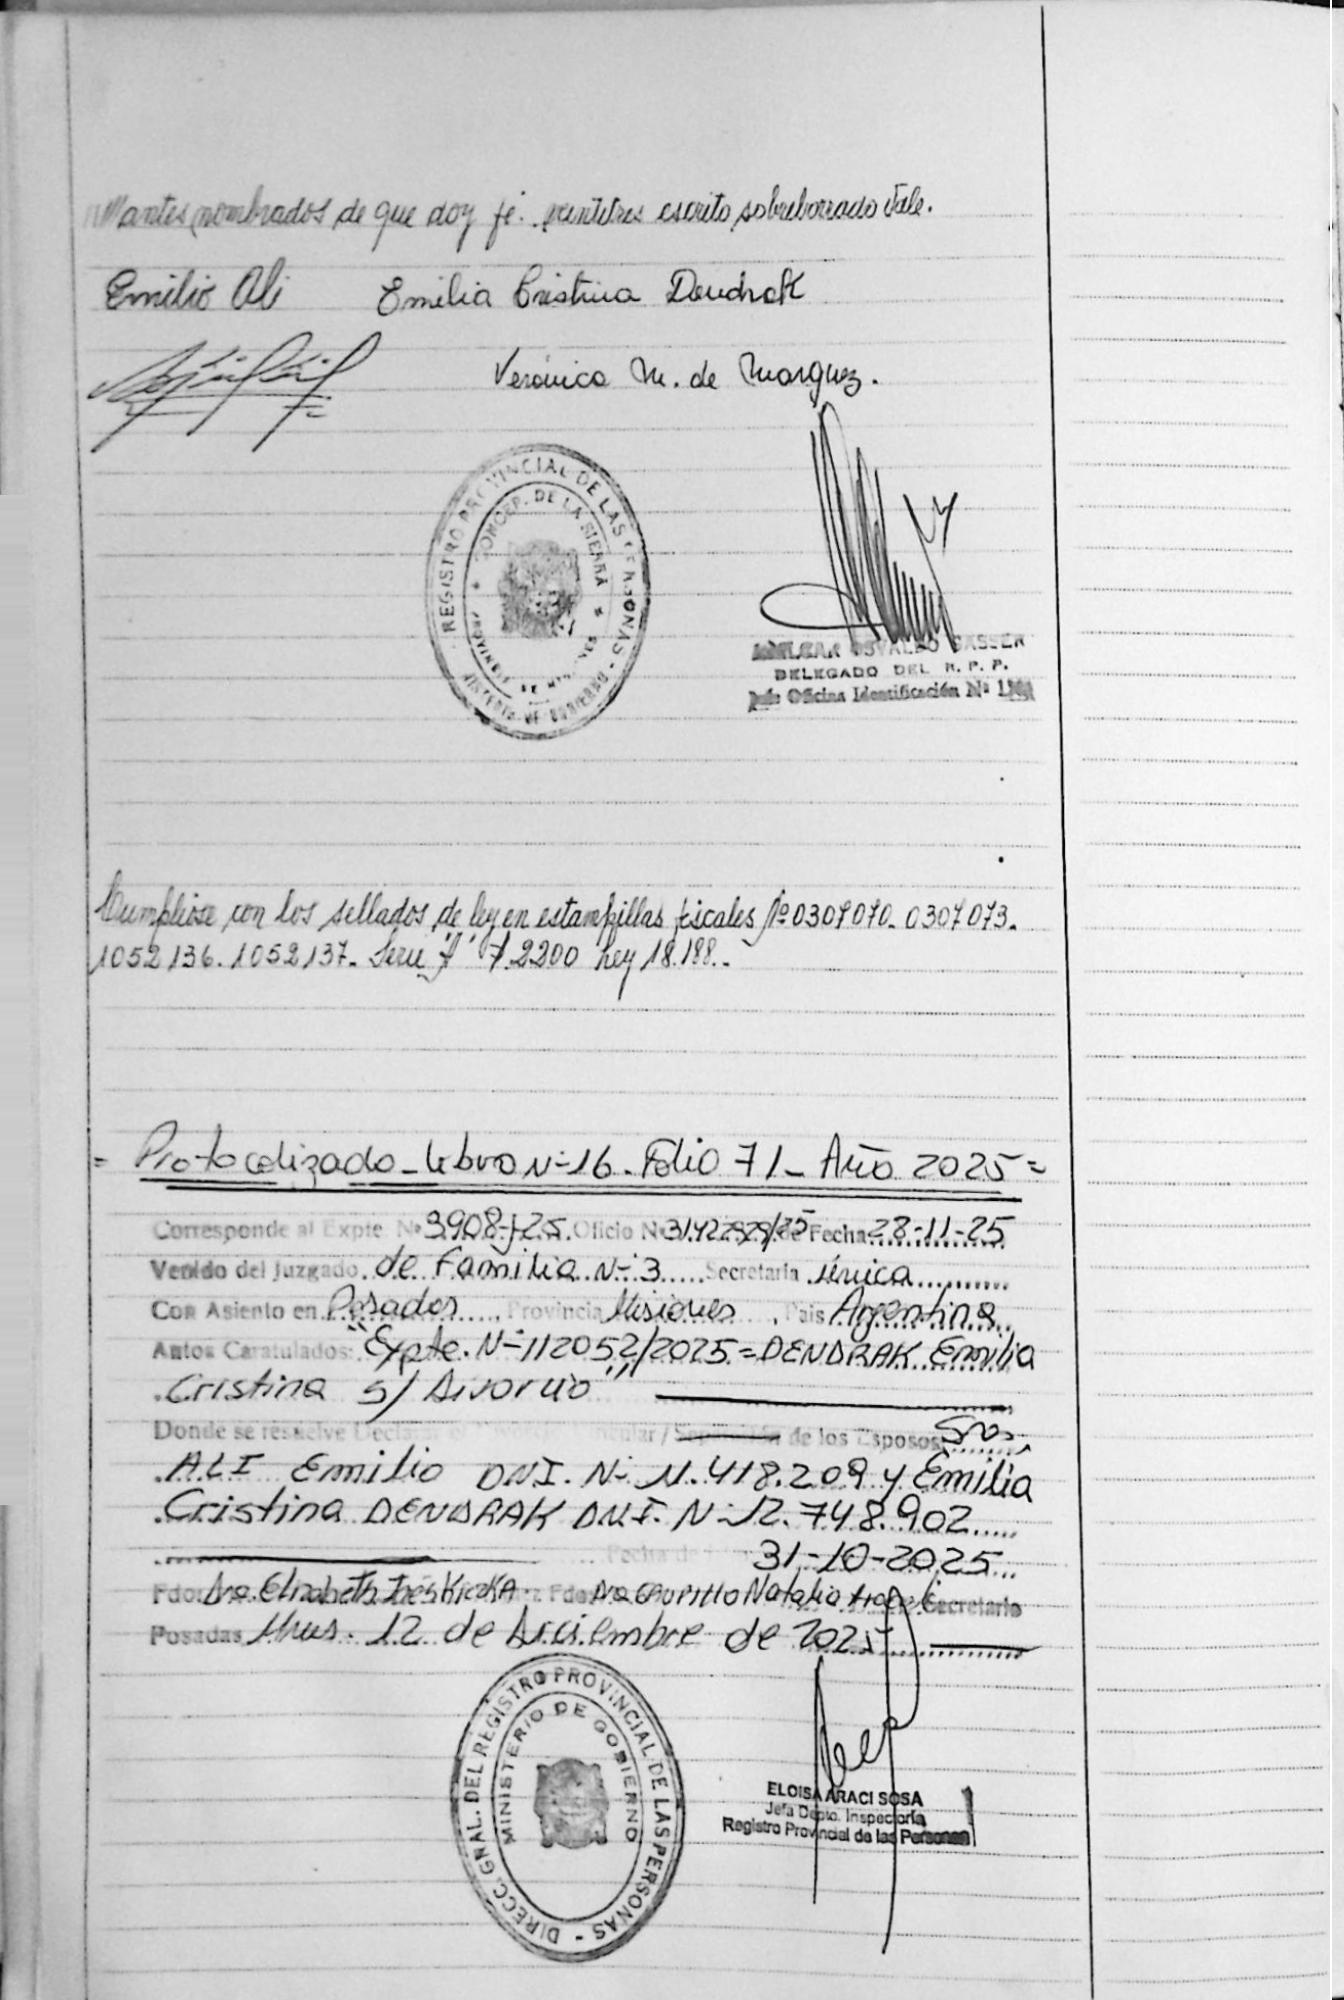 nombrados de que doy fé. veintitres escrito sobreborrado Vale.
Emilio Ali Emilia Cristina Dendrak
Verónica M. de Marquez.
REGISTRO PROVINCIAL DE LAS PERSONAS - MINISTERIO DE GOBIERNO
CONCEP. DE LA SIERRA * PROVINCIA DE MISIONES *
OSVALDO GASSER
DELEGADO DEL R. P. P.
Jefe Oficina Identificación Nº
Cumpliose con los sellados de ley en estampillas fiscales Nº 0307070. 0307073.
1052136. 1052137. Serie "A" 2200 Ley 18.188.-
= Protocolizado - Libro Nº 16 - Folio 71 - Año 2025 =
Corresponde al Expte. Nº 3908-J-25. Oficio Nº de Fecha 28-11-25
Venido del Juzgado de Familia Nº 3 Secretaría única
Con Asiento en Posadas, Provincia Misiones, País Argentina
Autos Caratulados: "Expte. Nº 112052/2025 = DENDRAK Emilia
Cristina s/ Divorcio"
Donde se resuelve Declarar el Divorcio Vincular / Separación de los Esposos Sres.
ALI Emilio DNI. Nº 11.418.209 y Emilia
Cristina DENDRAK DNI. Nº 12.748.902
Fecha de 31-10-2025
Fdo. Dra. Elizabeth Inés Kiczka Fdo. Dra. Natalia Secretario
Posadas Mnes. 12 de Diciembre de 2025
DIRECC. GNAL. DEL REGISTRO PROVINCIAL DE LAS PERSONAS -
MINISTERIO DE GOBIERNO
ELOISA ARACI SOSA
Jefa Dpto. Inspectoría
Registro Provincial de las Personas